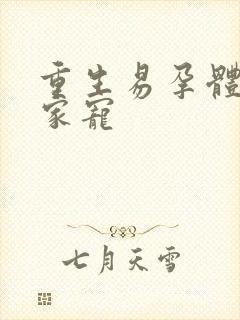 重生易孕體
家寵
七月天雪